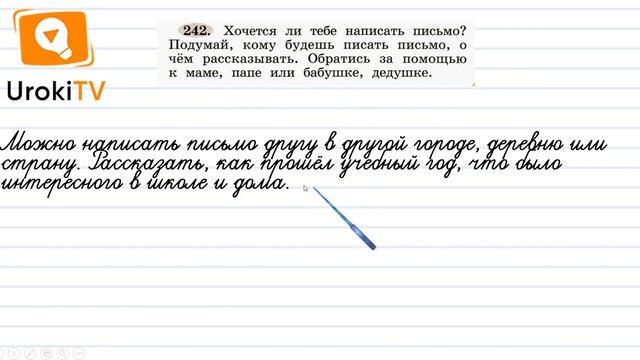 242. Хочется ли тебе написать письмо?
Подумай, кому будешь писать письмо, о
чём рассказывать. Обратись за помощью
к маме, папе или бабушке, дедушке.
UrokiTV
Можно написать письмо другу в другой городе, деревню или
страну. Рассказать, как прошёл учебный год, что было
интересного в школе и дома.